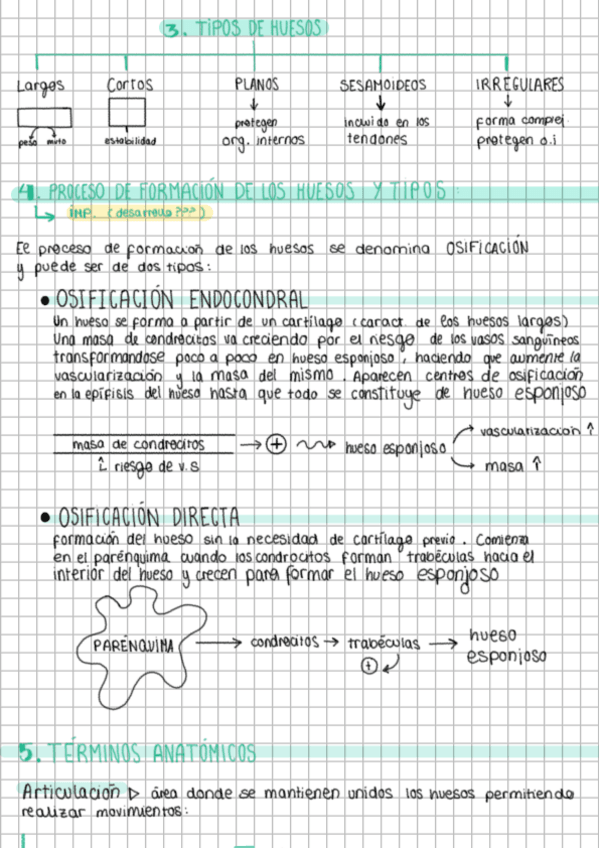 3. TIPOS DE HUESOS
Larges Cortos PLANOS SESAMOIDEOS IRREGULARES
peso mvto
estabilidad
protegen
org. internos
incluido en los
tendones
forma comprej.
protegen o.i
4. PROCESO DE FORMACIÓN DE LOS HUESOS Y TIPOS:
IMP. (desarrollo???)
El proceso de formacion de los huesos se denomina OSIFICACIÓN
y puede ser de dos tipos:
• OSIFICACIÓN ENDOCONDRAL
Un hueso se forma a partir de un cartílago (caract. de los huesos largos)
Una masa de condrocitos va creciendo por el riesgo de los vasos sanguíneos
transformandose poco a poco en hueso esponjoso, haciendo que aumente la
vascularización y la masa del mismo. Aparecen centros de osificación
en la epífisis del hueso hasta que todo se constituye de hueso esponjoso
masa de condrocitos → + hueso esponjoso
vascularizacion ↑
masa ↑
riesgo de v.s
• OSIFICACIÓN DIRECTA
formación del hueso sin la necesidad de cartílago previo. Comienza
en el parénquima cuando los condrocitos forman trabéculas hacia el
interior del hueso y crecen para formar el hueso esponjoso
PARÉNQUIMA → condrocitos → trabéculas → hueso
esponjoso
+
5. TÉRMINOS ANATÓMICOS
Articulación ▷ área donde se mantienen unidos los huesos permitiendo
realizar movimientos: